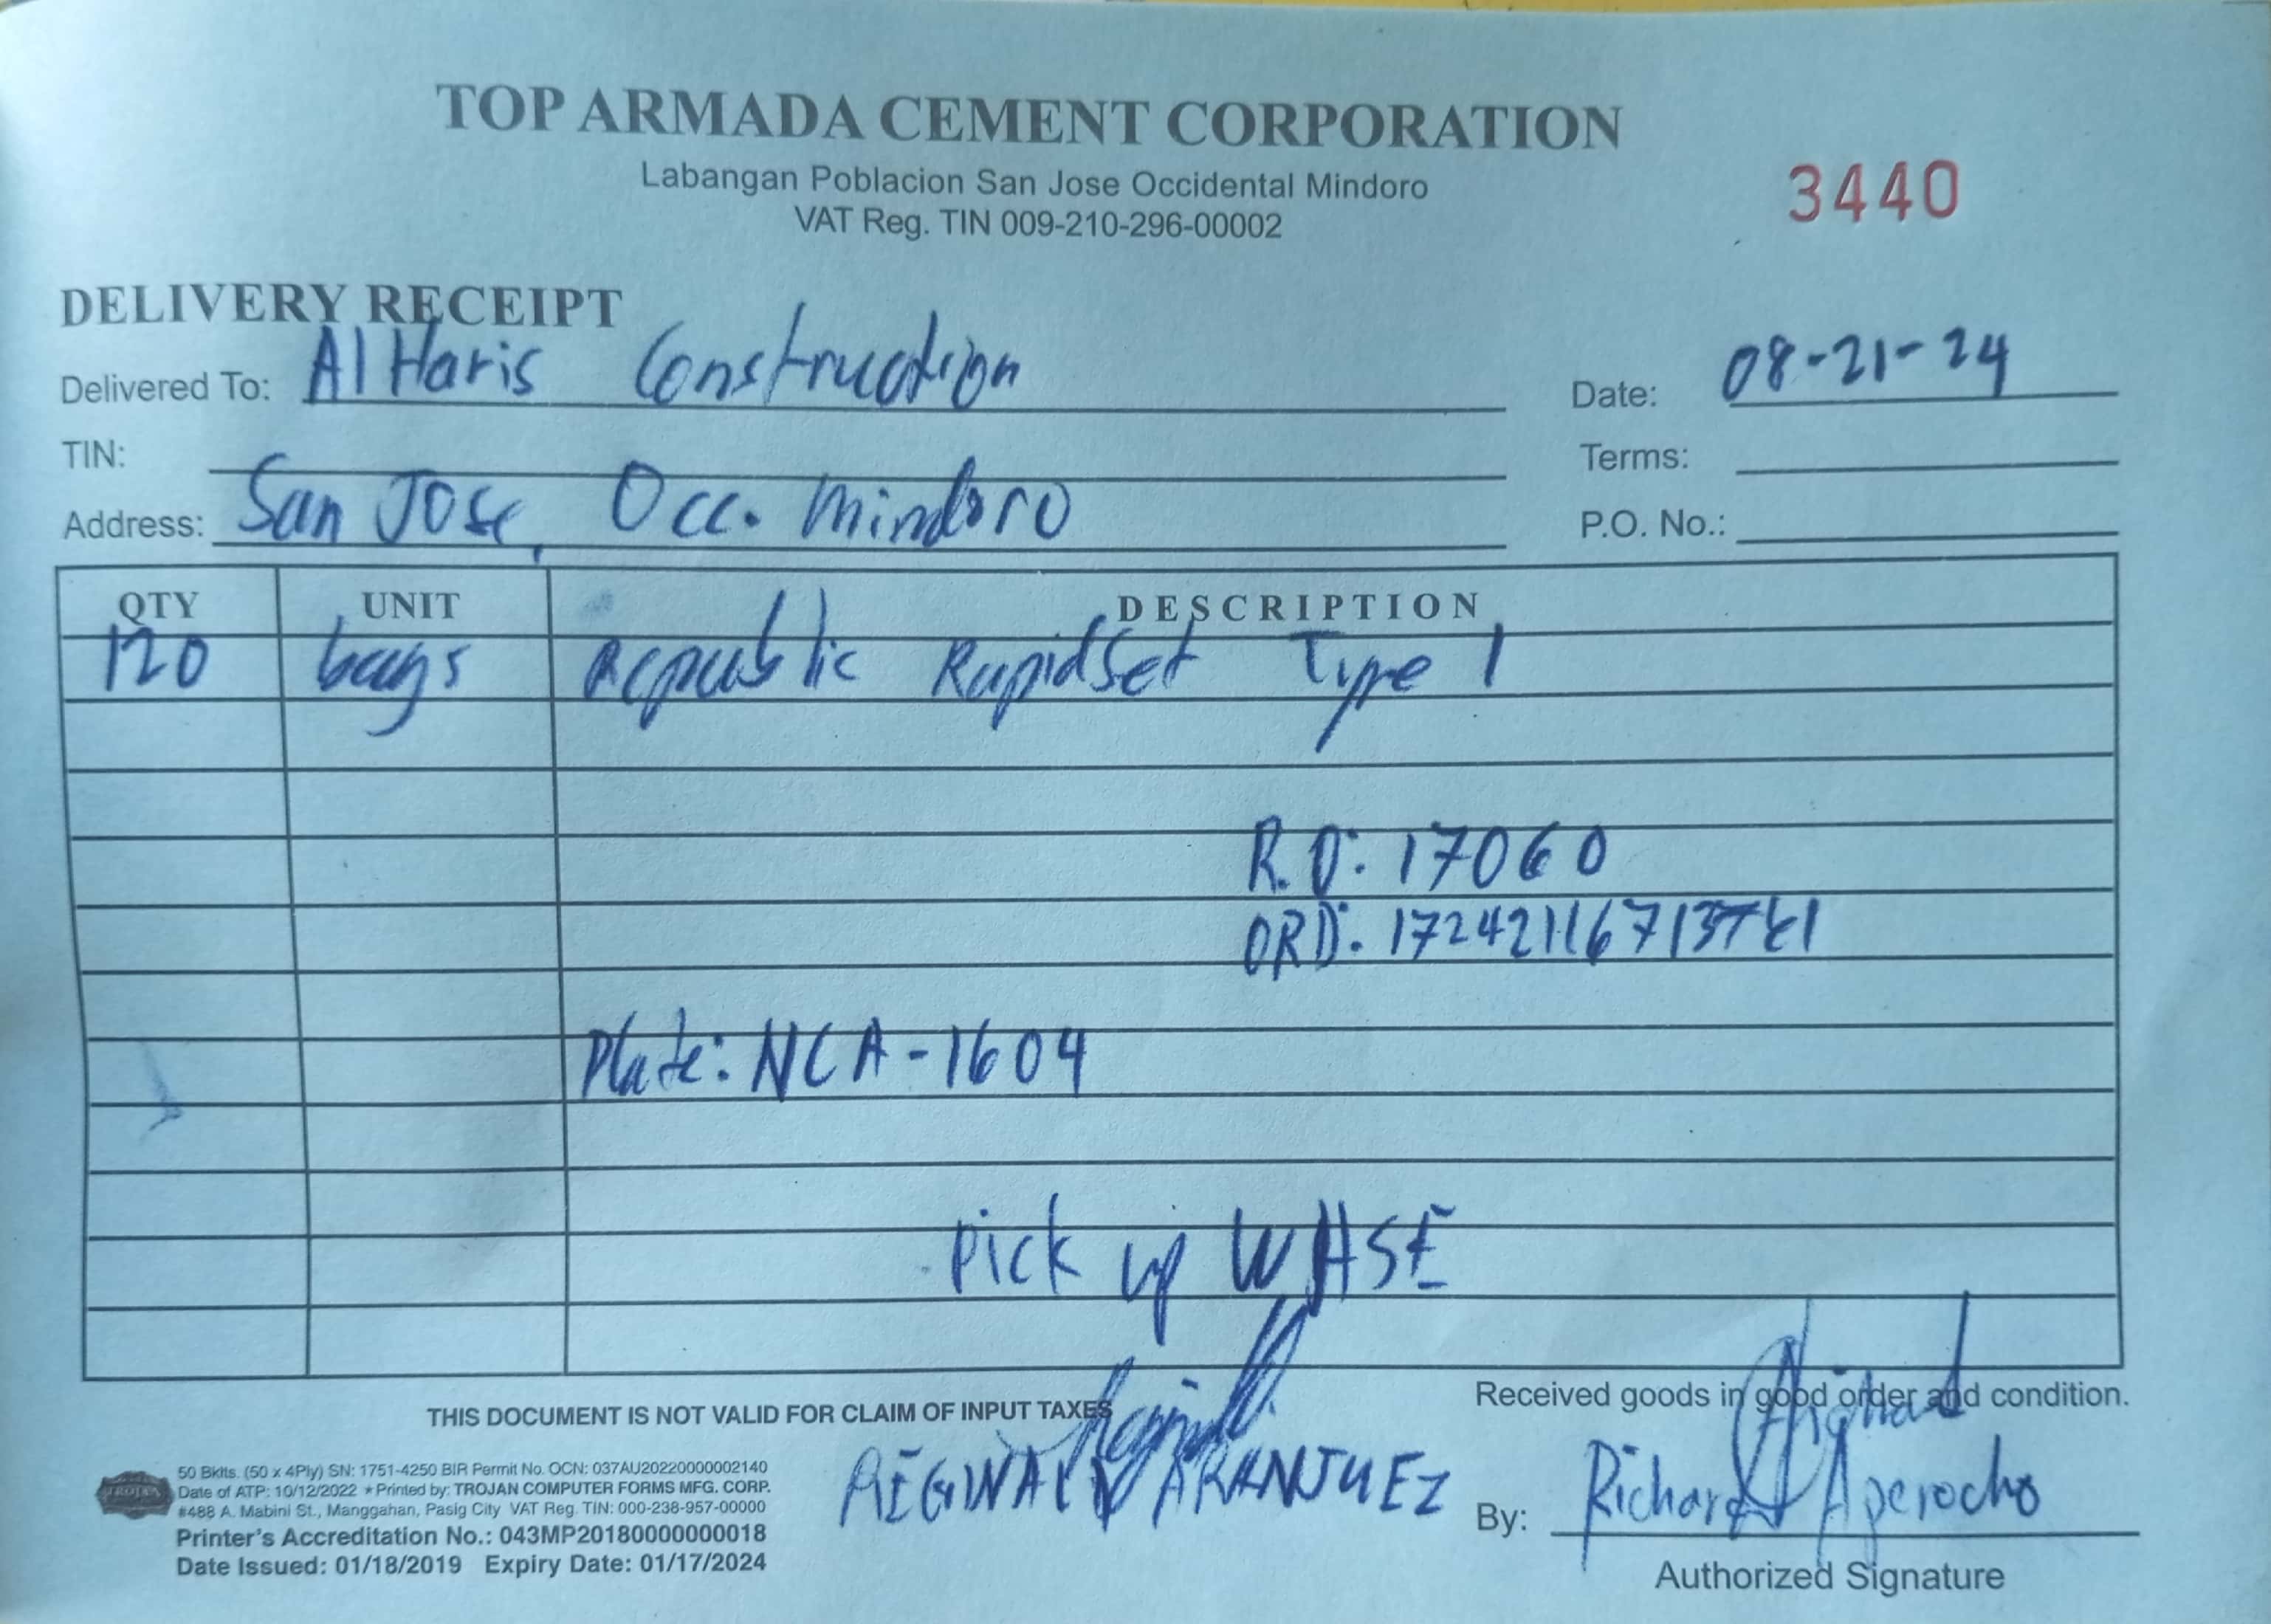 TOP ARMADA CEMENT CORPORATION
Labangan Poblacion San Jose Occidental Mindoro
VAT Reg. TIN 009-210-296-00002
3440
DELIVERY RECEIPT
Delivered To: Al Haris Construction
Date: 08-21-24
TIN:
Terms:
Address: San Jose, Occ. Mindoro
P.O. No.:
QTY UNIT DESCRIPTION
120 bags Republic RapidSet Type 1
R.O: 17060
ORD:
Plate: NCA-1604
Pick up WHSE
THIS DOCUMENT IS NOT VALID FOR CLAIM OF INPUT TAXES
Received goods in good order and condition.
REGINALD ARANJUEZ
By: Richard Aperocho
Authorized Signature
TROJAN
50 Bklts. (50 x 4Ply) SN: 1751-4250 BIR Permit No. OCN: 037AU20220000002140
Date of ATP: 10/12/2022 ★Printed by: TROJAN COMPUTER FORMS MFG. CORP.
#488 A. Mabini St., Manggahan, Pasig City VAT Reg. TIN: 000-238-957-00000
Printer's Accreditation No.: 043MP20180000000018
Date Issued: 01/18/2019 Expiry Date: 01/17/2024